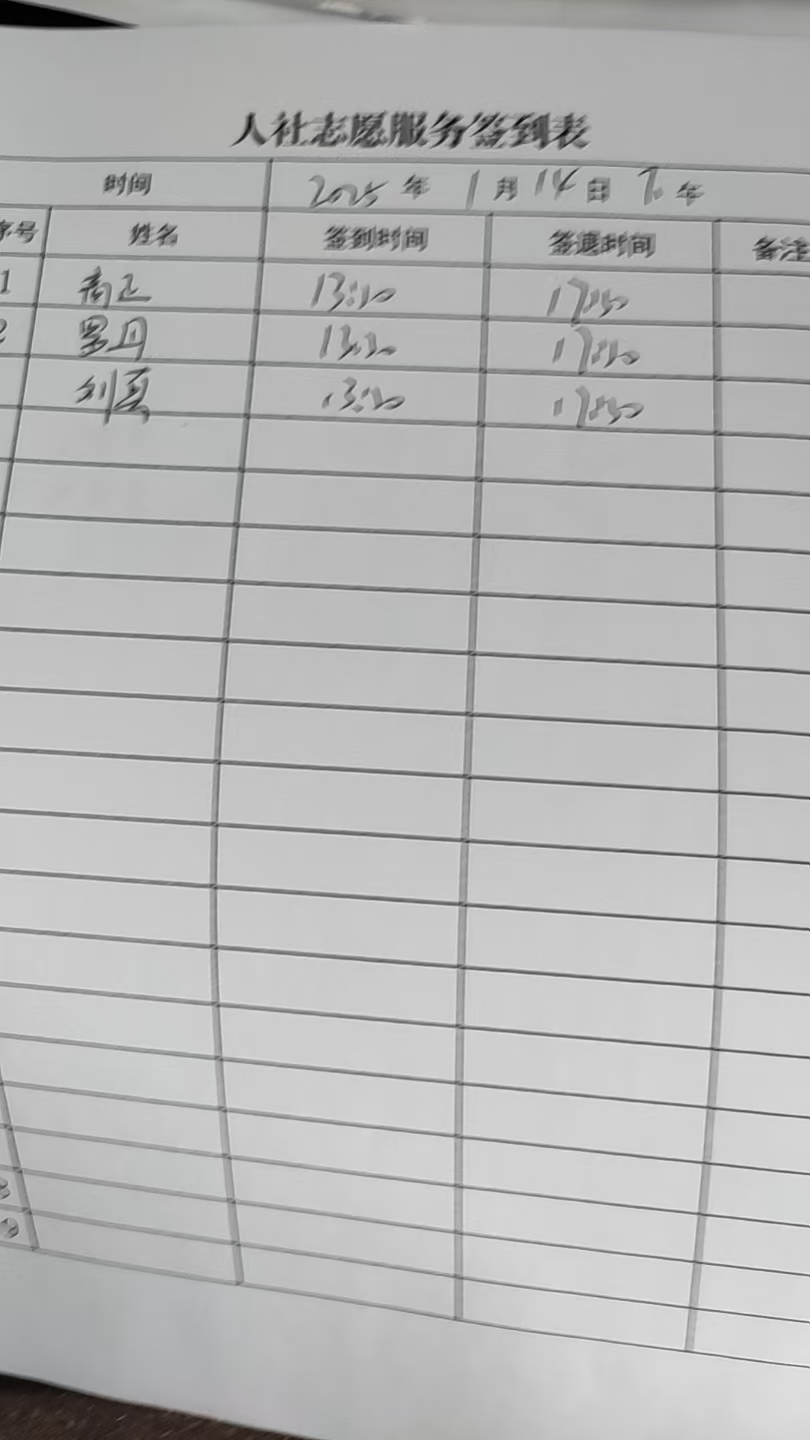 人社志愿服务签到表
时间 2025年 1月14日 下午
序号 姓名 签到时间 签退时间 备注
1 高正 13:30 17:30
2 罗丹 13:30 17:30
13:30 17:30